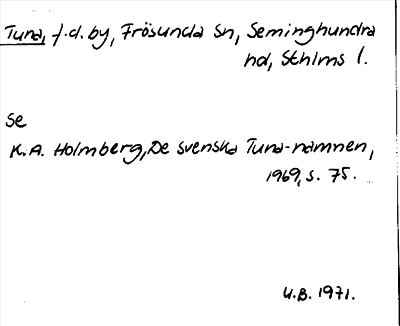 Tuna, f.d. by, Frösunda Sn, Seminghundra
hd, Sthlms l.
Se
K.A. Holmberg, De svenska Tuna-namnen,
1969, s. 75.
U.B. 1971.